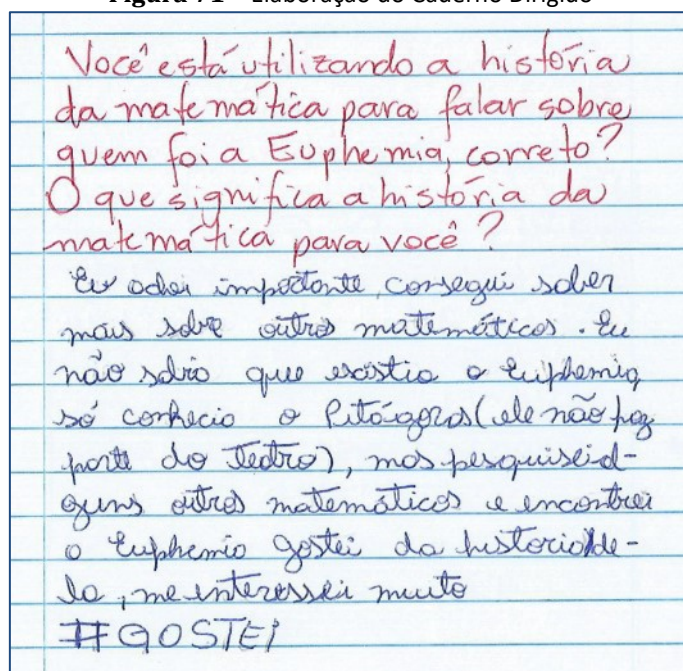 Figura 71 – Elaboração do Caderno Dirigido
Você está utilizando a história
da matemática para falar sobre
quem foi a Euphemia, correto?
O que significa a história da
matemática para você?
Eu achei importante, consegui saber
mais sobre outros matemáticos. Eu
não sabia que existia a Euphemia,
só conhecia o Pitágoras (ele não faz
parte do teatro), mas pesquisei al-
guns outros matemáticos e encontrei
a Euphemia gostei da historia de-
la, me interessei muito
#GOSTEI